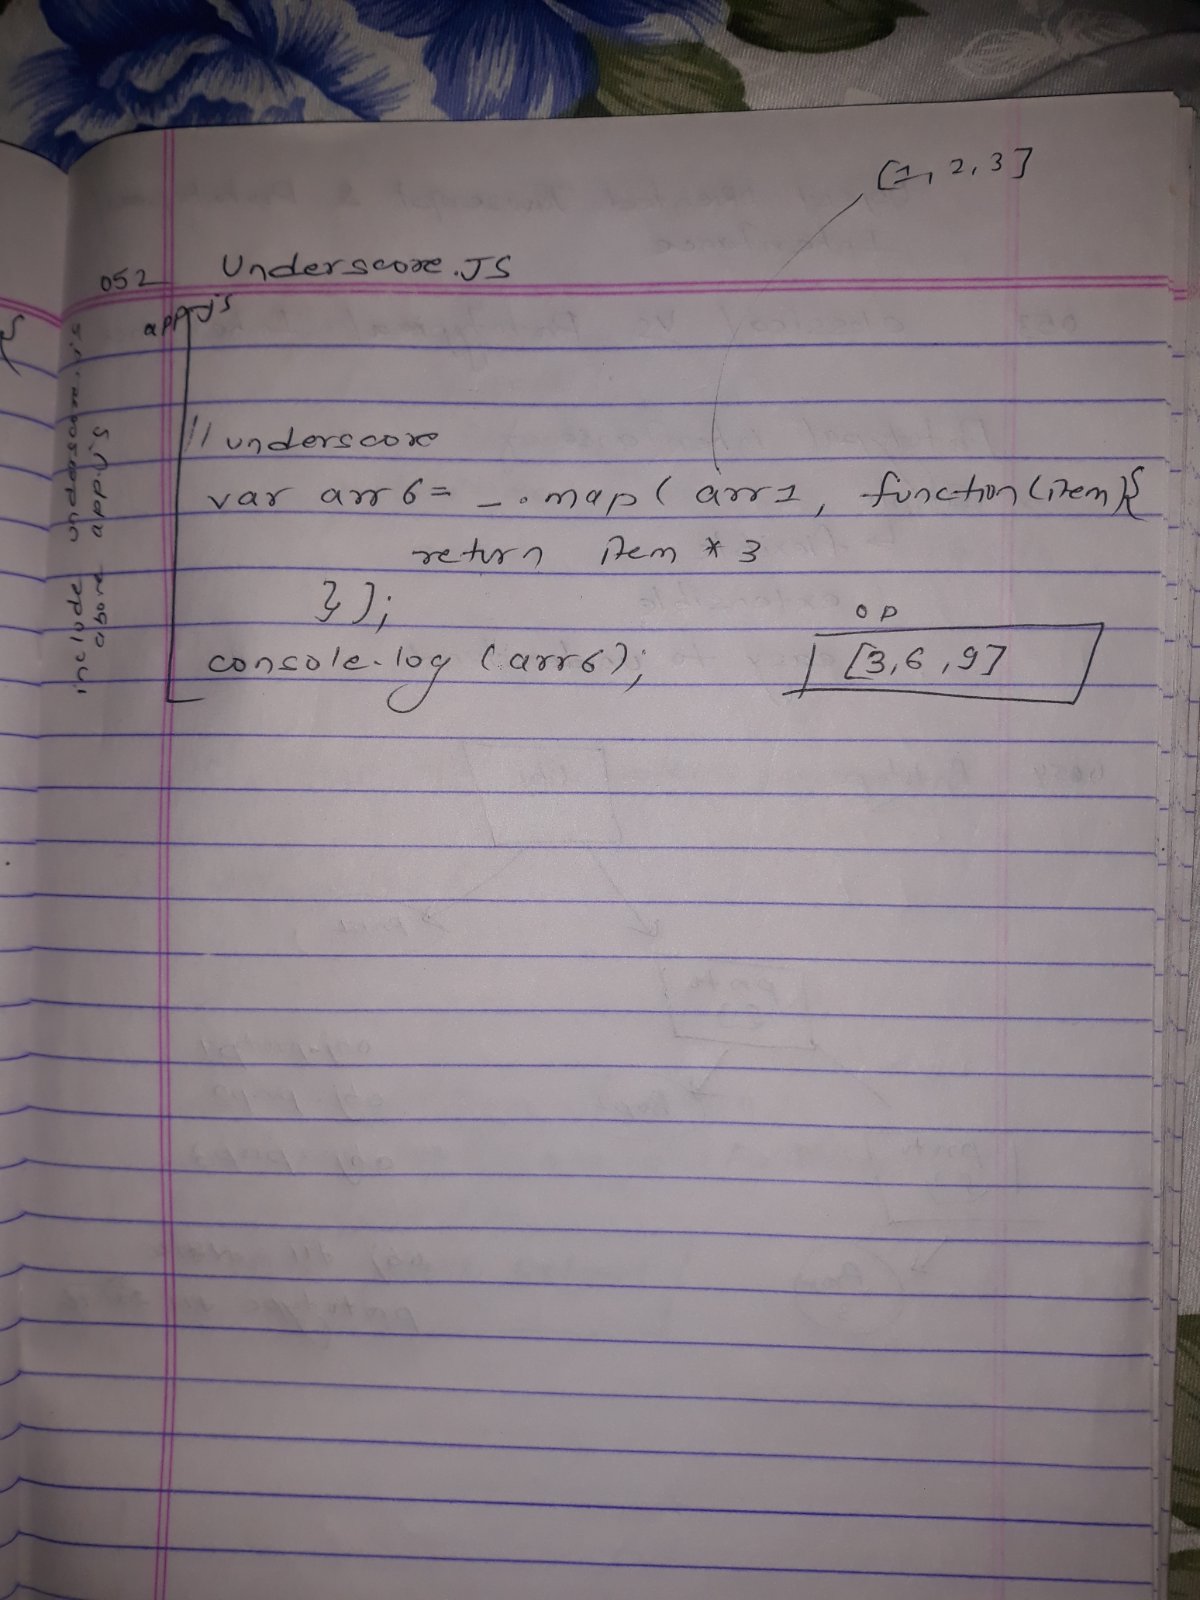 [1, 2, 3]
052 Underscore.JS
app.js
include underscore.js
above app.js
// underscore
var arr6 = _.map( arr1, function(item){
return item * 3
});
OP
console.log (arr6); [3,6,9]